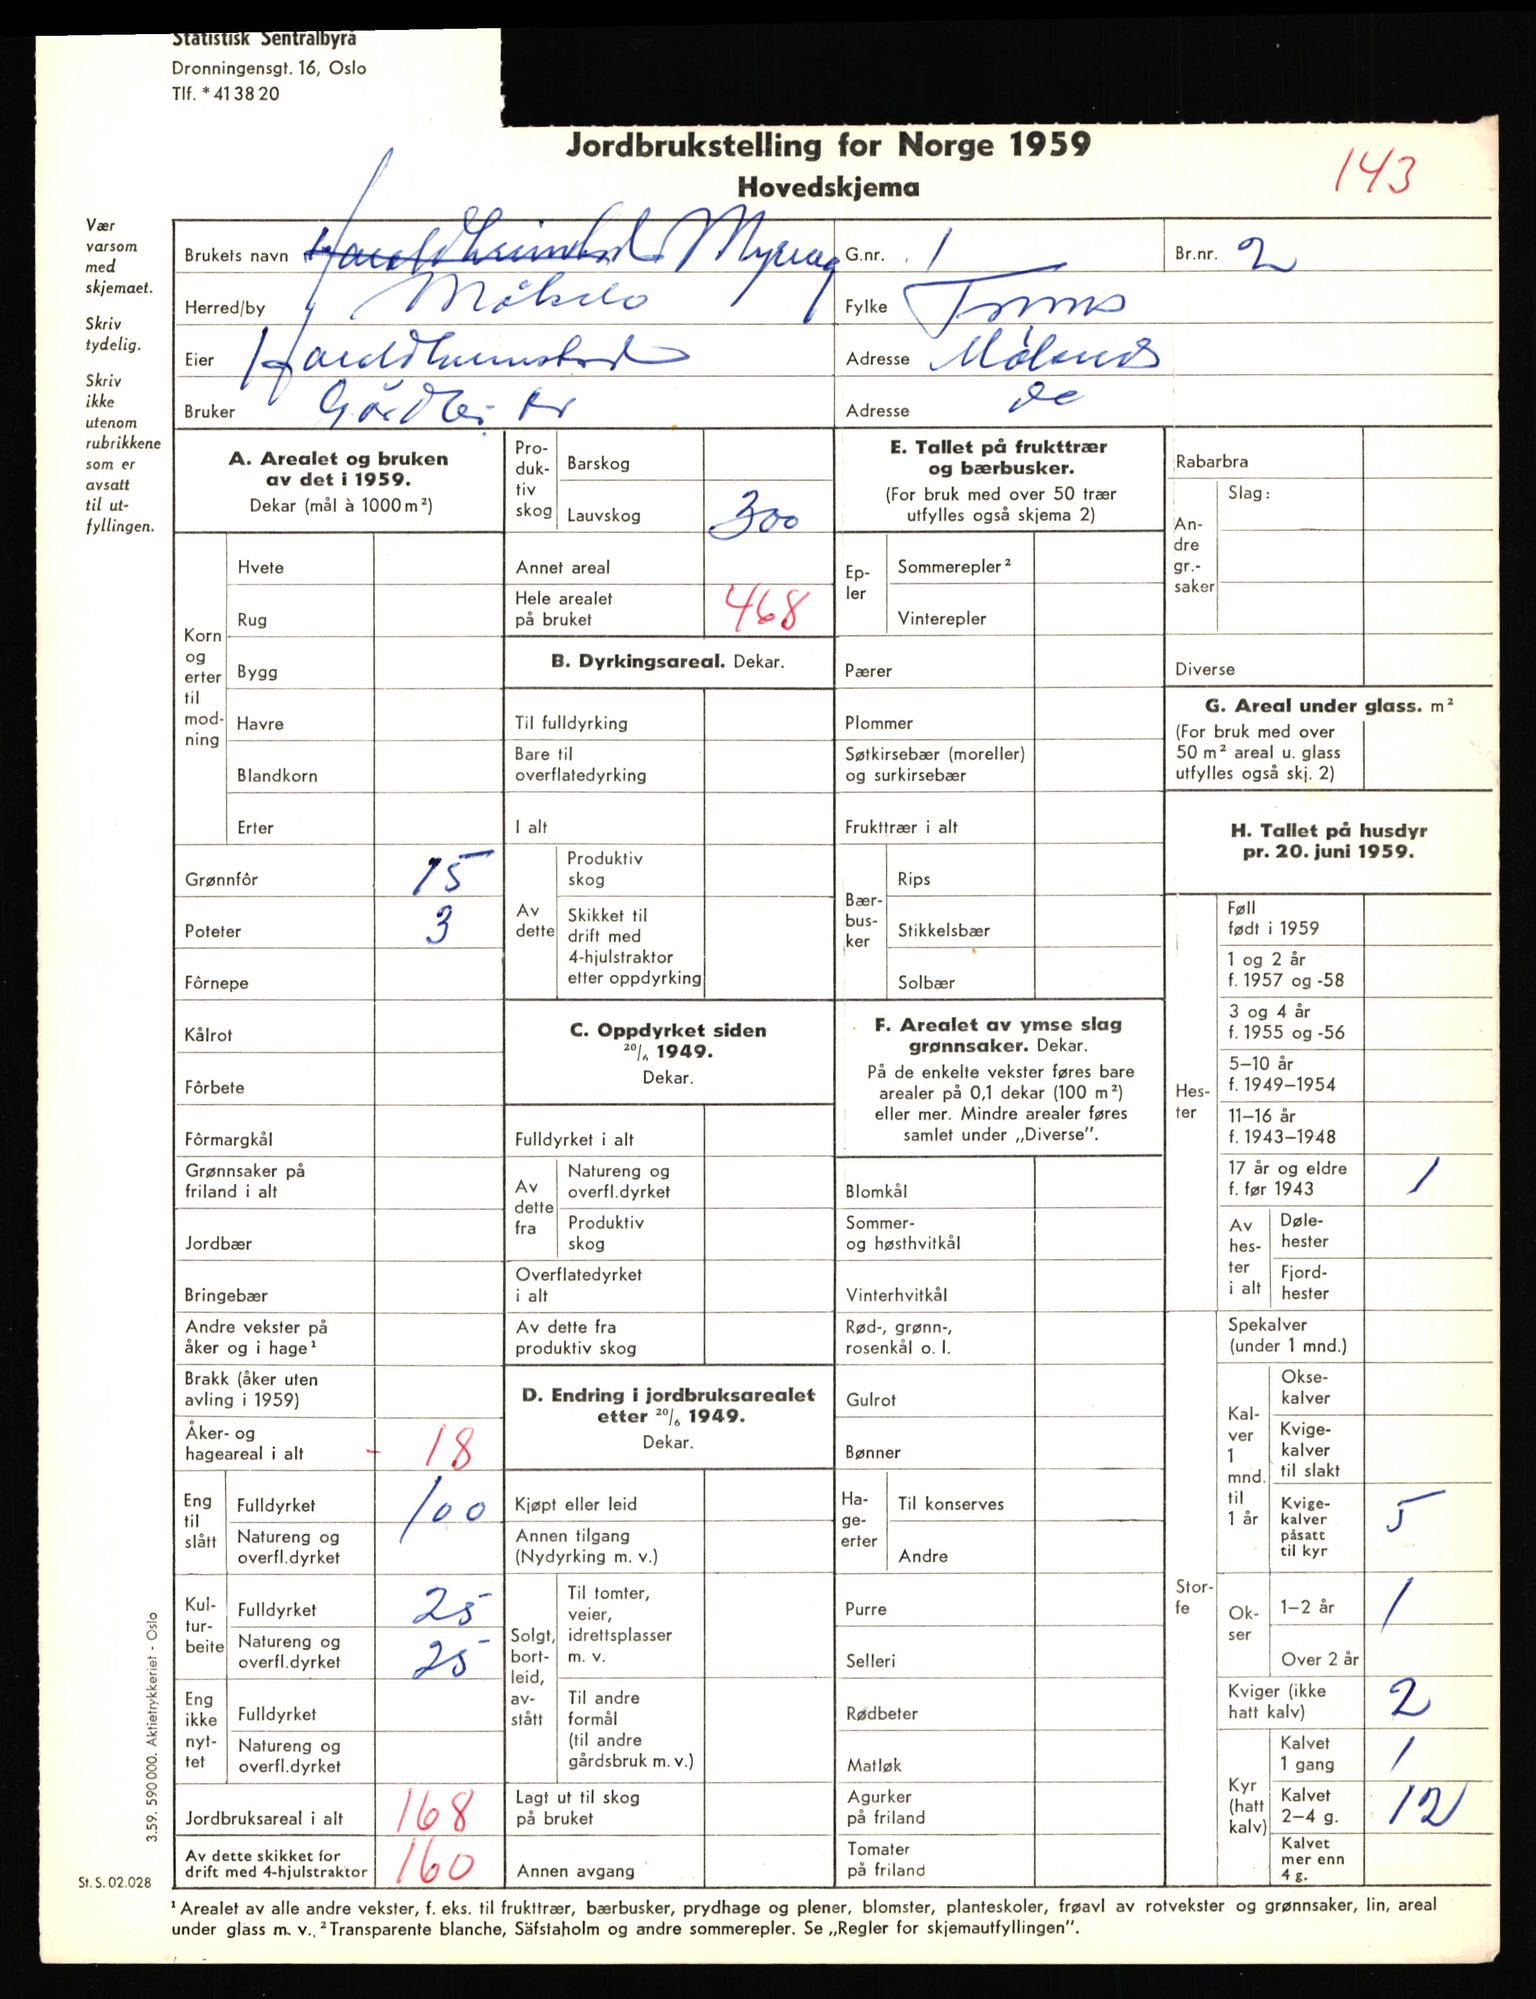 Statistisk Sentralbyrå
Dronningensgt. 16, Oslo
Tlf. * 41 38 20
Jordbrukstelling for Norge 1959
Hovedskjema
143
Vær varsom med skjemaet.
Skriv tydelig.
Skriv ikke utenom rubrikkene som er avsatt til ut-fyllingen.
Brukets navn
G.nr. 1
Br.nr. 2
Herred/by
Fylke Troms
Eier
Adresse
Bruker
Adresse do
A. Arealet og bruken av det i 1959.
Dekar (mål à 1000 m²)
Korn og erter til mod-ning
Hvete
Rug
Bygg
Havre
Blandkorn
Erter
Grønnfôr 15
Poteter 3
Fôrnepe
Kålrot
Fôrbete
Fôrmargkål
Grønnsaker på friland i alt
Jordbær
Bringebær
Andre vekster på åker og i hage¹
Brakk (åker uten avling i 1959)
Åker- og hageareal i alt - 18
Eng til slått
Fulldyrket 100
Natureng og overfl.dyrket
Kul-tur-beite
Fulldyrket 25
Natureng og overfl.dyrket 25
Eng ikke nyt-tet
Fulldyrket
Natureng og overfl.dyrket
Jordbruksareal i alt 168
Av dette skikket for drift med 4-hjulstraktor 160
Pro-duk-tiv skog
Barskog
Lauvskog 300
Annet areal
Hele arealet på bruket 468
B. Dyrkingsareal. Dekar.
Til fulldyrking
Bare til overflatedyrking
I alt
Av dette
Produktiv skog
Skikket til drift med 4-hjulstraktor etter oppdyrking
C. Oppdyrket siden 20/6 1949.
Dekar.
Fulldyrket i alt
Av dette fra
Natureng og overfl.dyrket
Produktiv skog
Overflatedyrket i alt
Av dette fra produktiv skog
D. Endring i jordbruksarealet etter 20/6 1949.
Dekar.
Kjøpt eller leid
Annen tilgang (Nydyrking m. v.)
Solgt, bort-leid, av-stått
Til tomter, veier, idrettsplasser m. v.
Til andre formål (til andre gårdsbruk m. v.)
Lagt ut til skog på bruket
Annen avgang
E. Tallet på frukttrær og bærbusker.
(For bruk med over 50 trær utfylles også skjema 2)
Ep-ler
Sommerepler²
Vinterepler
Pærer
Plommer
Søtkirsebær (moreller) og surkirsebær
Frukttrær i alt
Bær-bus-ker
Rips
Stikkelsbær
Solbær
F. Arealet av ymse slag grønnsaker. Dekar.
På de enkelte vekster føres bare arealer på 0,1 dekar (100 m²) eller mer. Mindre arealer føres samlet under „Diverse”.
Blomkål
Sommer- og høsthvitkål
Vinterhvitkål
Rød-, grønn-, rosenkål o. l.
Gulrot
Bønner
Ha-ge-erter
Til konserves
Andre
Purre
Selleri
Rødbeter
Matløk
Agurker på friland
Tomater på friland
Rabarbra
An-dre gr.-saker
Slag:
Diverse
G. Areal under glass. m²
(For bruk med over 50 m² areal u. glass utfylles også skj. 2)
H. Tallet på husdyr pr. 20. juni 1959.
Hes-ter
Føll født i 1959
1 og 2 år f. 1957 og -58
3 og 4 år f. 1955 og -56
5–10 år f. 1949–1954
11–16 år f. 1943–1948
17 år og eldre f. før 1943 1
Av hes-ter i alt
Døle-hester
Fjord-hester
Stor-fe
Spekalver (under 1 mnd.)
Kal-ver 1 mnd. til 1 år
Okse-kalver
Kvige-kalver til slakt
Kvige-kalver påsatt til kyr 5
Ok-ser
1–2 år 1
Over 2 år
Kviger (ikke hatt kalv) 2
Kyr (hatt kalv)
Kalvet 1 gang 1
Kalvet 2–4 g. 12
Kalvet mer enn 4 g.
3.59. 590 000. Aktietrykkeriet - Oslo
St. S. 02.028
¹ Arealet av alle andre vekster, f. eks. til frukttrær, bærbusker, prydhage og plener, blomster, planteskoler, frøavl av rotvekster og grønnsaker, lin, areal
under glass m. v. ² Transparente blanche, Säfstaholm og andre sommerepler. Se „Regler for skjemautfyllingen”.